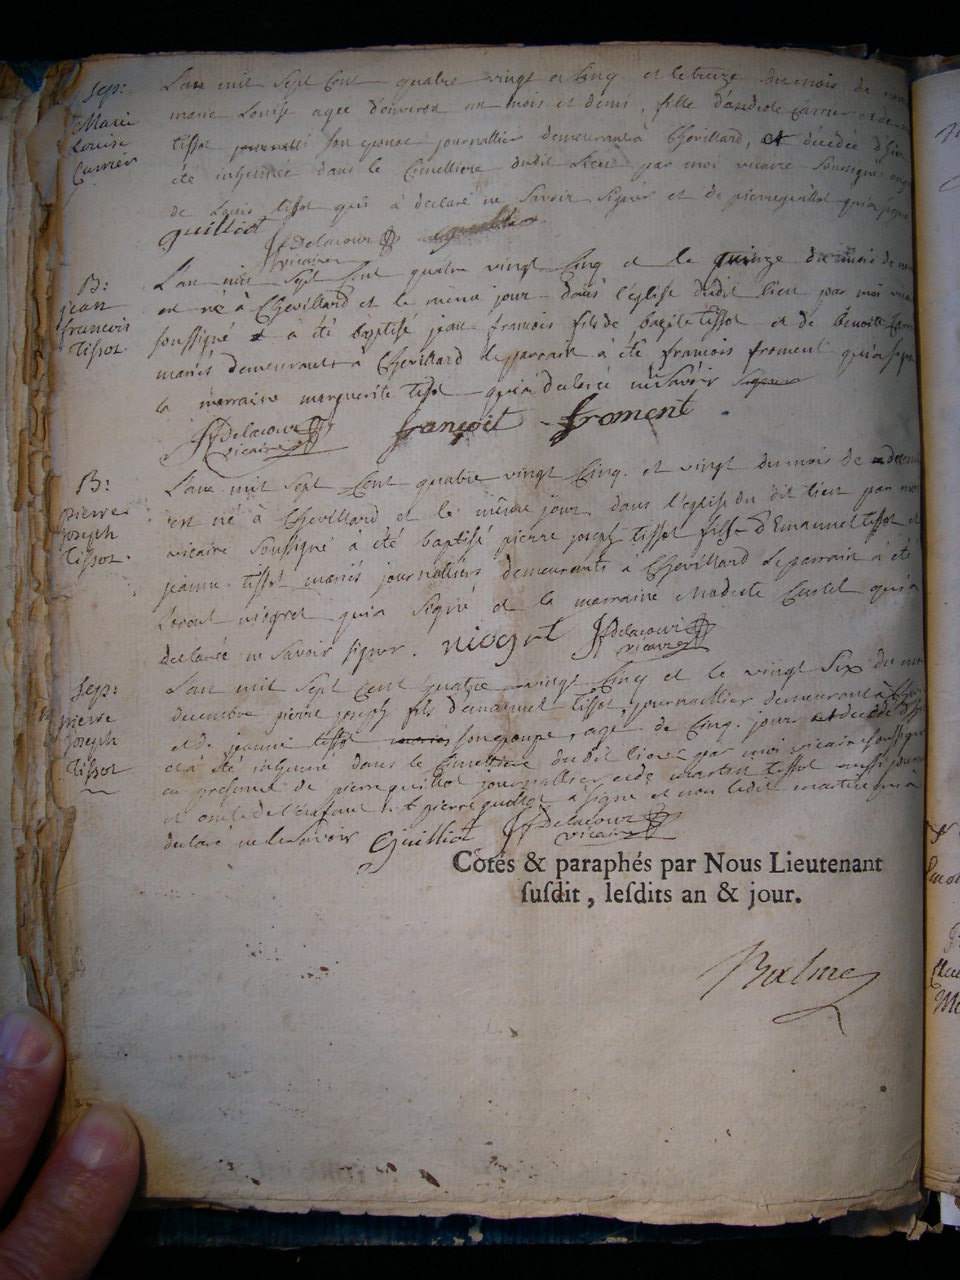 Sep:
Marie
Louise
Carrier
L'an mil sept Cent quatre vingt et Cinq et le treize du mois de
marie Louise agée d'environ un mois et demi, fille d'andéole Carrier et de
tissot son epouse journallier demeurant à Chevillard, et décédée d'hier
été inhumée dans le Cimettiere dudit Lieu par moi vicaire soussigné
de Louis tissot qui à déclaré ne Savoir Signer et de pierre guillot qui a signé
guilliot
JfDelacour
vicaire
B:
jean
francois
tissot
L'an mil Sept Cent quatre vingt Cinq et le quinze du mois de
est né à Chevillard et le même jour dans l'église dudit lieu par moi
soussigné a été baptisé jean francois fils de bazile tissot et de benoite
mariés demeurants à Chevillard le parrain à été francois froment qui a signé
la marraine marguerite tissot qui a déclaré ne savoir signer
JfDelacour
vicaire
françoit froment
B:
pierre
Joseph
tissot
L'an mil Sept Cent quatre vingt Cinq et vingt du mois de
est né à Chevillard et le même jour dans l'église du dit lieu par moi
vicaire soussigné à été baptisé pierre joseph tissot fils d'Emanuel tissot et
jeanne tissot mariés journalliers demeurants à Chevillard le parrain à été
niogret qui a signé et la marraine modeste Custel qui a
declaré ne savoir signer. niogrt
JfDelacour
vicaire
Sep:
pierre
Joseph
tissot
L'an mil Sept Cent quatre vingt Cinq et le vingt Six du
decembre pierre joseph fils d'emanuel tissot, journallier demeurant à
et de jeanne tissot mariés son epouse, agé de Cinq jours et decédé
et à été inhumé dans le Cimettiere du dit lieu par moi vicaire soussigné
en présence de pierre guillot journallier et de martin tissot aussi
et oncle de l'enfant. pierre guillot a signé et non ledit martin qui a
declaré ne le savoir Guilliot
JfDelacour
vicaire
Cotés & paraphés par Nous Lieutenant
ſuſdit, leſdits an & jour.
Balme